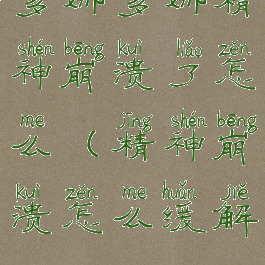 多娜多娜精
shén bēng kuì liǎo zěn
神崩溃了怎
me jīng shén bēng
么(精神崩
kuì zěn me huǎn jiě
溃怎么缓解